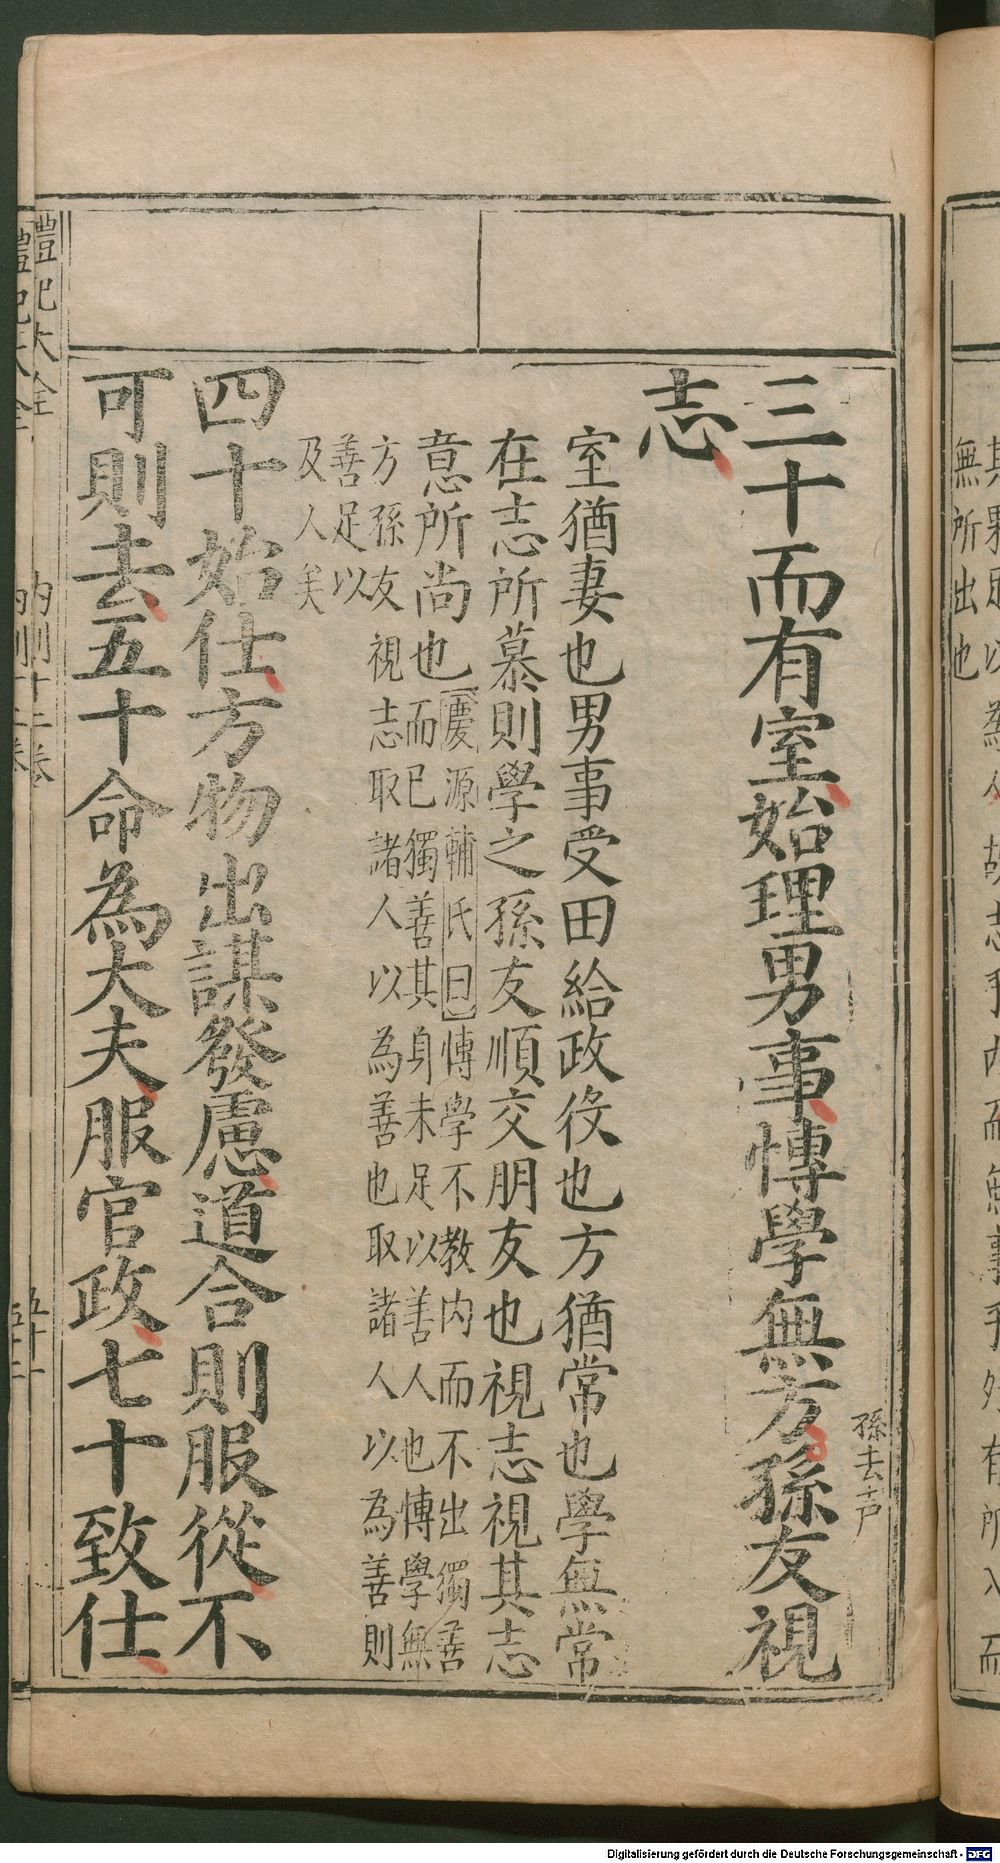 三十而有室始理男事慱學無方孫友視
孫去声
志
室猶妻也男事受田給政役也方猶常也學無常
在志所慕則學之孫友順交朋友也視志視其志
意所尚也
慶源輔氏曰慱學不教内而不出獨善
而已獨善其身未足以善人也慱學無
方孫友視志取諸人以為善也取諸人以為善則
善足以
及人矣
四十始仕方物出謀發慮道合則服從不
可則去五十命為大夫服官政七十致仕
禮記大全
内則十二卷
五十一
無所出也
Digitalisierung gefördert durch die Deutsche Forschungsgemeinschaft - DFG